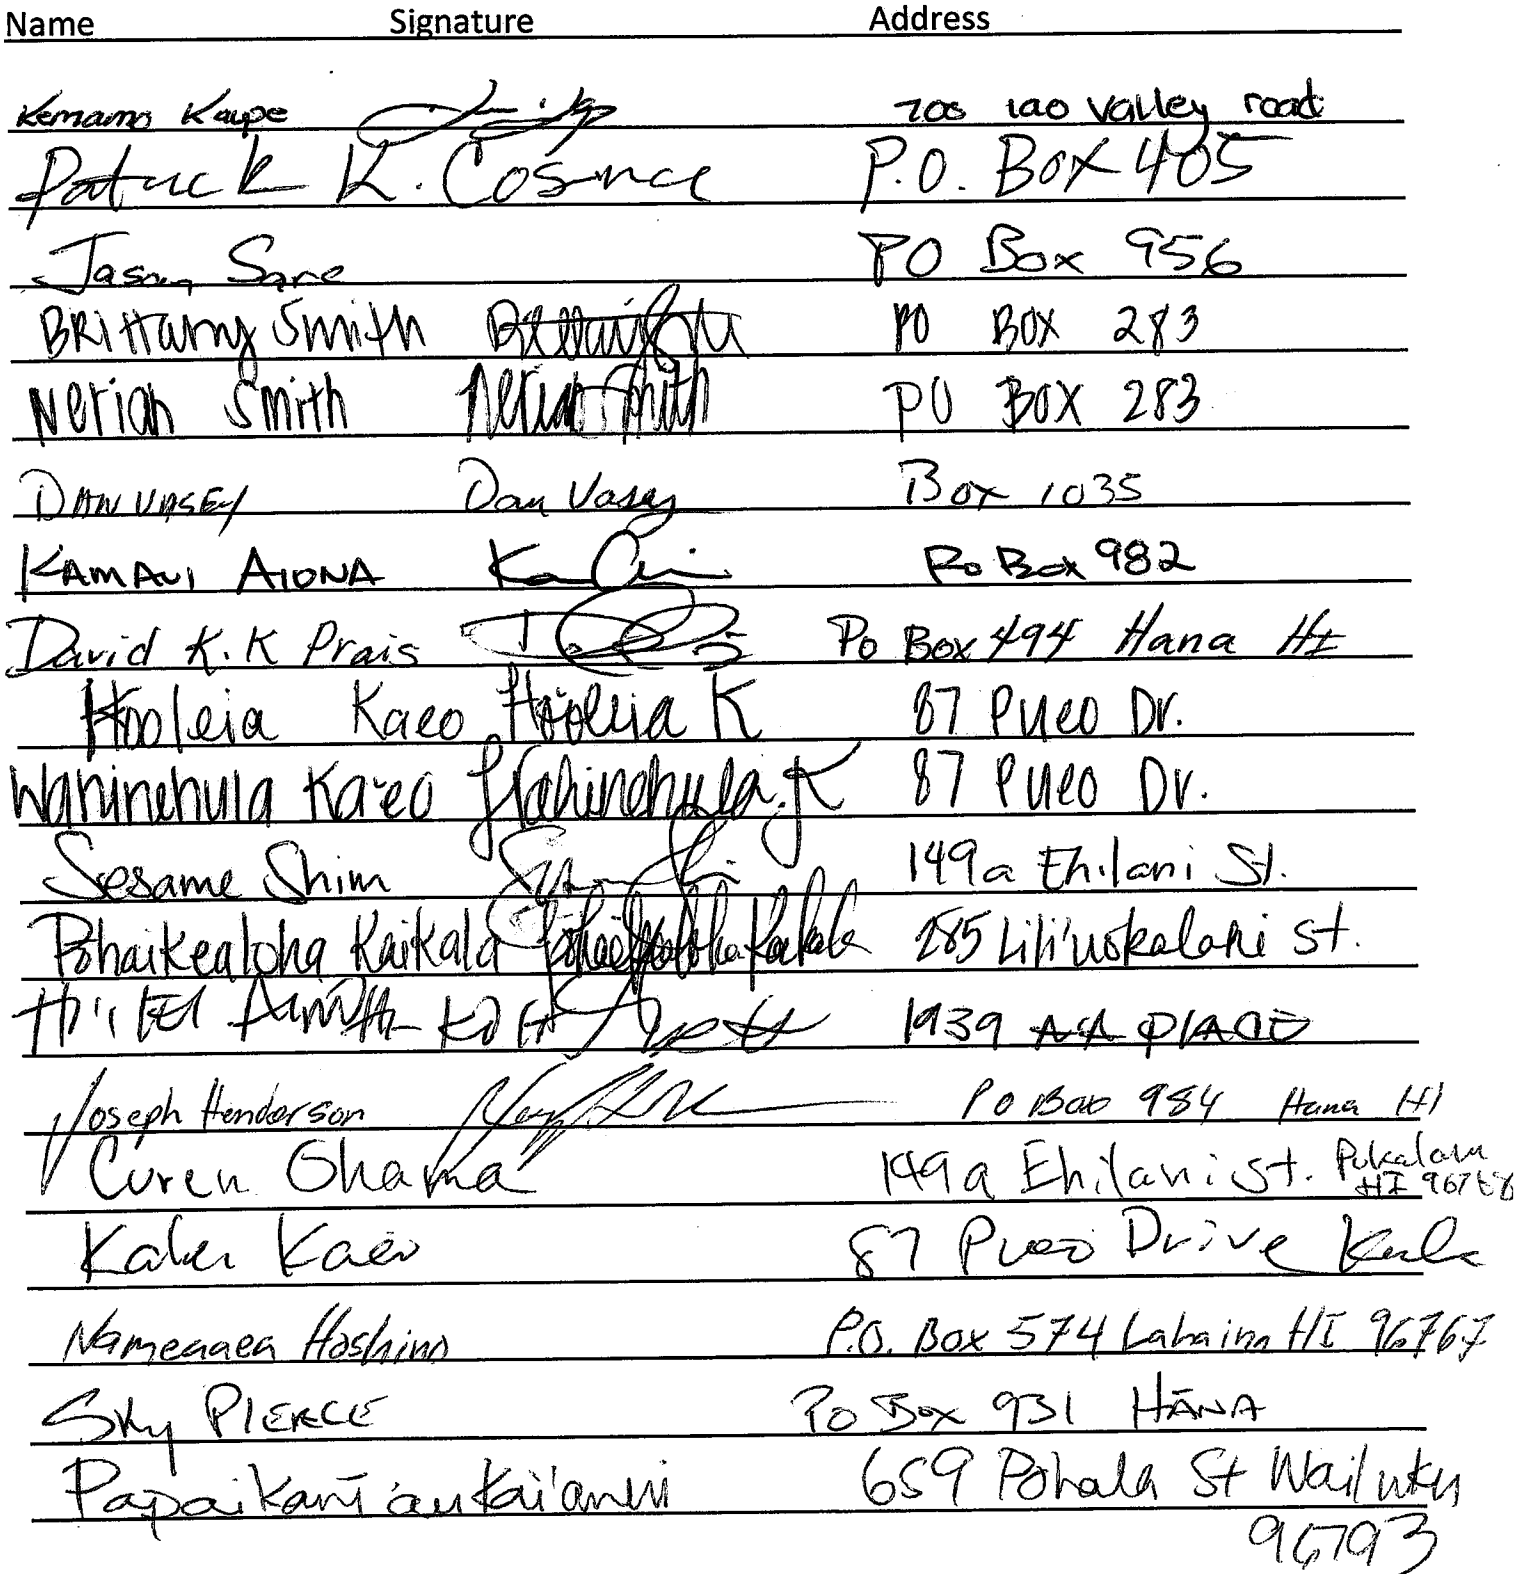 Name Signature Address
Kemamo Kaupe 700 iao valley road
Patrick K. P.O. Box 405
Jason PO Box 956
Brittany Smith PO BOX 283
Neriah Smith Neriah Smith PO BOX 283
DAN VASEY Dan Vasey Box 1035
KAMAUI AIONA Po Box 982
David K.K Prais Po Box 494 Hana HI
Hooleia Kaeo Hooleia K 87 Pueo Dr.
Wahinehula Kaeo Wahinehula.K 87 Pueo Dr.
Sesame Shim 149a Ehilani St.
Pohaikealoha Kaikala Pohaikealoha Kaikala 285 Lili'uokalani St.
1939 PLACE
Joseph Henderson PO Box 984 Hana HI
Curen Ohama 149a Ehilani St. Pukalani HI 96768
Kaeo 87 Pueo Drive Kula
Hoshino P.O. Box 574 Lahaina HI 96767
Sky PIERCE Po Box 931 HĀNA
659 Pohala St Wailuku
96793